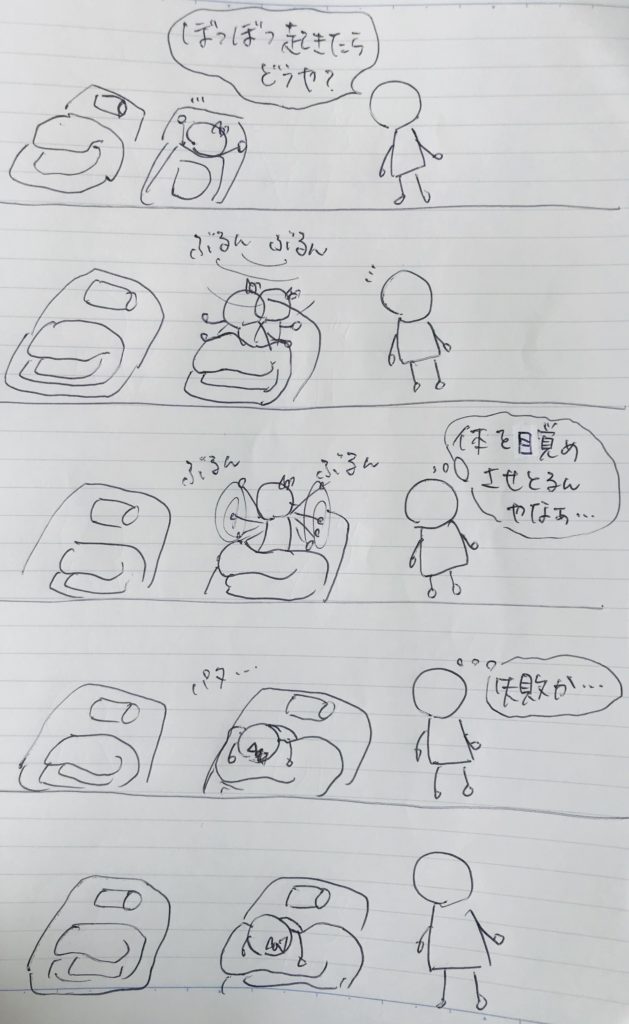 ぼつぼつ起きたら
どうや?
ぶるん ぶるん
ぶるん ぶるん
体を目覚め
させとるん
やなぁ…
パタ…
失敗か…